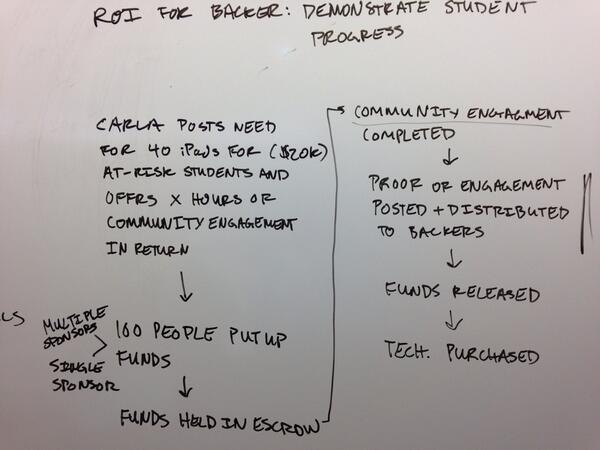 ROI FOR BACKER: DEMONSTRATE STUDENT
PROGRESS
CARLA POSTS NEED
FOR 40 iPads FOR ($20K)
AT-RISK STUDENTS AND
OFFRS X HOURS OR
COMMUNITY ENGAGEMENT
IN RETURN
MULTIPLE
SPONSORS
SINGLE
SPONSOR
100 PEOPLE PUT UP
FUNDS
FUNDS HELD IN ESCROW
COMMUNITY ENGAGMENT
COMPLETED
PROOF OR ENGAGEMENT
POSTED + DISTRIBUTED
TO BACKERS
FUNDS RELEASED
TECH. PURCHASED